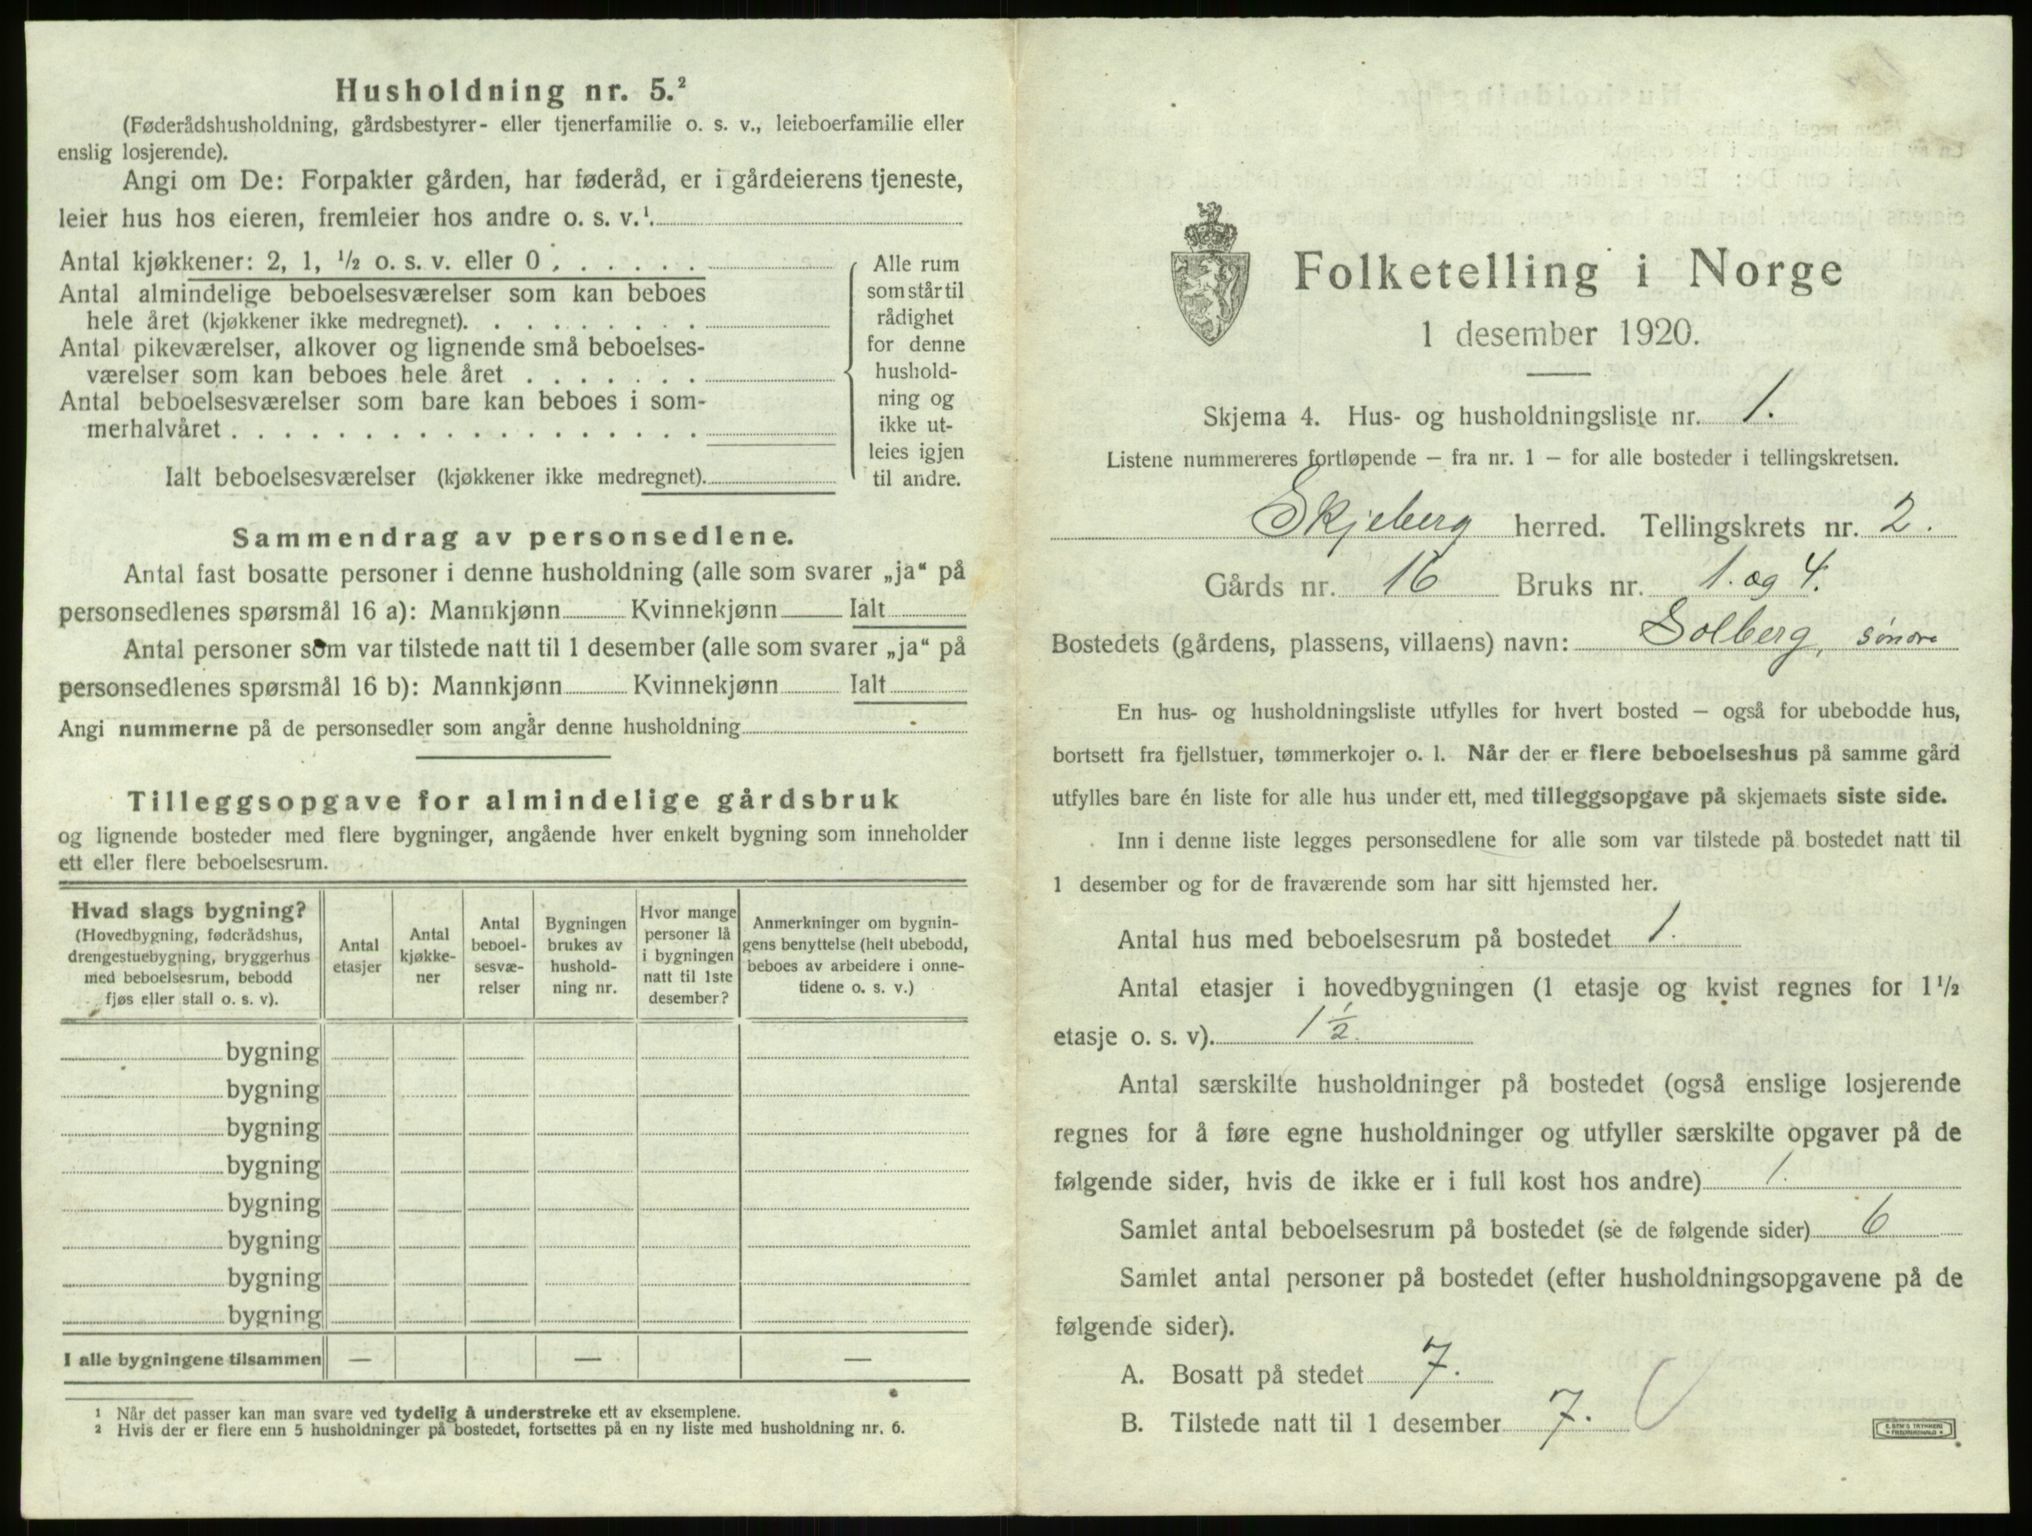 Husholdning nr. 5.²
(Føderådshusholdning, gårdsbestyrer- eller tjenerfamilie o. s. v., leieboerfamilie eller
enslig losjerende).
Angi om De: Forpakter gården, har føderåd, er i gårdeierens tjeneste,
leier hus hos eieren, fremleier hos andre o. s. v.¹
Antal kjøkkener: 2, 1, ½ o. s. v. eller 0 . . . . . .
Antal almindelige beboelsesværelser som kan beboes
hele året (kjøkkener ikke medregnet). . . . . . . . .
Antal pikeværelser, alkover og lignende små beboelses-
værelser som kan beboes hele året . . . . . . .
Antal beboelsesværelser som bare kan beboes i som-
merhalvåret . . . . . . . . . . . . . . . . . .
Ialt beboelsesværelser (kjøkkener ikke medregnet).
Alle rum
som står til
rådighet
for denne
hushold-
ning og
ikke ut-
leies igjen
til andre.
Sammendrag av personsedlene.
Antal fast bosatte personer i denne husholdning (alle som svarer „ja“ på
personsedlenes spørsmål 16 a): Mannkjønn Kvinnekjønn Ialt
Antal personer som var tilstede natt til 1 desember (alle som svarer „ja“ på
personsedlenes spørsmål 16 b): Mannkjønn Kvinnekjønn Ialt
Angi nummerne på de personsedler som angår denne husholdning
Tilleggsopgave for almindelige gårdsbruk
og lignende bosteder med flere bygninger, angående hver enkelt bygning som inneholder
ett eller flere beboelsesrum.
Hvad slags bygning?
(Hovedbygning, føderådshus,
drengestuebygning, bryggerhus
med beboelsesrum, bebodd
fjøs eller stall o. s. v).
Antal
etasjer
Antal
kjøkke-
ner
Antal
beboel-
sesvæ-
relser
Bygningen
brukes av
hushold-
ning nr.
Hvor mange
personer lå
i bygningen
natt til 1ste
desember?
Anmerkninger om bygnin-
gens benyttelse (helt ubebodd,
beboes av arbeidere i onne-
tidene o. s. v.)
bygning
bygning
bygning
bygning
bygning
bygning
bygning
bygning
I alle bygningene tilsammen — — —
¹ Når det passer kan man svare ved tydelig å understreke ett av eksemplene.
² Hvis der er flere enn 5 husholdninger på bostedet, fortsettes på en ny liste med husholdning nr. 6.
Folketelling i Norge
1 desember 1920.
Skjema 4. Hus- og husholdningsliste nr. 1.
Listene nummereres fortløpende — fra nr. 1 — for alle bosteder i tellingskretsen.
Skjeberg herred. Tellingskrets nr. 2.
Gårds nr. 16 Bruks nr. 1. og 4.
Bostedets (gårdens, plassens, villaens) navn: Solberg, søndre
En hus- og husholdningsliste utfylles for hvert bosted — også for ubebodde hus,
bortsett fra fjellstuer, tømmerkojer o. l. Når der er flere beboelseshus på samme gård
utfylles bare én liste for alle hus under ett, med tilleggsopgave på skjemaets siste side.
Inn i denne liste legges personsedlene for alle som var tilstede på bostedet natt til
1 desember og for de fraværende som har sitt hjemsted her.
Antal hus med beboelsesrum på bostedet 1.
Antal etasjer i hovedbygningen (1 etasje og kvist regnes for 1½
etasje o. s. v). 1½.
Antal særskilte husholdninger på bostedet (også enslige losjerende
regnes for å føre egne husholdninger og utfyller særskilte opgaver på de
følgende sider, hvis de ikke er i full kost hos andre) 1.
Samlet antal beboelsesrum på bostedet (se de følgende sider) 6
Samlet antal personer på bostedet (efter husholdningsopgavene på de
følgende sider).
A. Bosatt på stedet 7.
B. Tilstede natt til 1 desember 7.